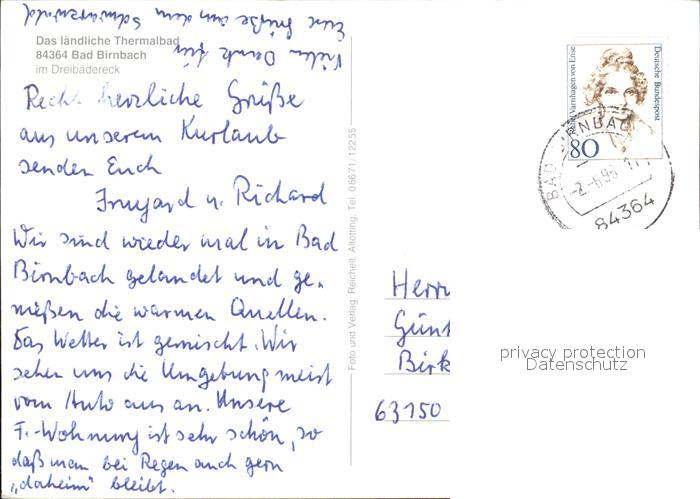 Vielen Dank für
Eure Grüße aus dem Schwarzwald
Das ländliche Thermalbad
84364 Bad Birnbach
im Dreibädereck
Recht herzliche Grüße
aus unserem Kurlaub
senden Euch
Irmgard u. Richard
Wir sind wieder mal in Bad
Birnbach gelandet und ge-
nießen die warmen Quellen.
Das Wetter ist gemischt. Wir
sehen uns die Umgebung meist
vom Auto aus an. Unsere
F.-Wohnung ist sehr schön, so
daß man bei Regen auch gern
"daheim" bleibt.
Foto und Verlag: Reichelt, Altötting, Tel. 08671/12255
Varnhagen von Ense
Deutsche Bundespost
80
BAD BIRNBACH
84364
Herrn
Günt
Birk
63150
privacy protection
Datenschutz